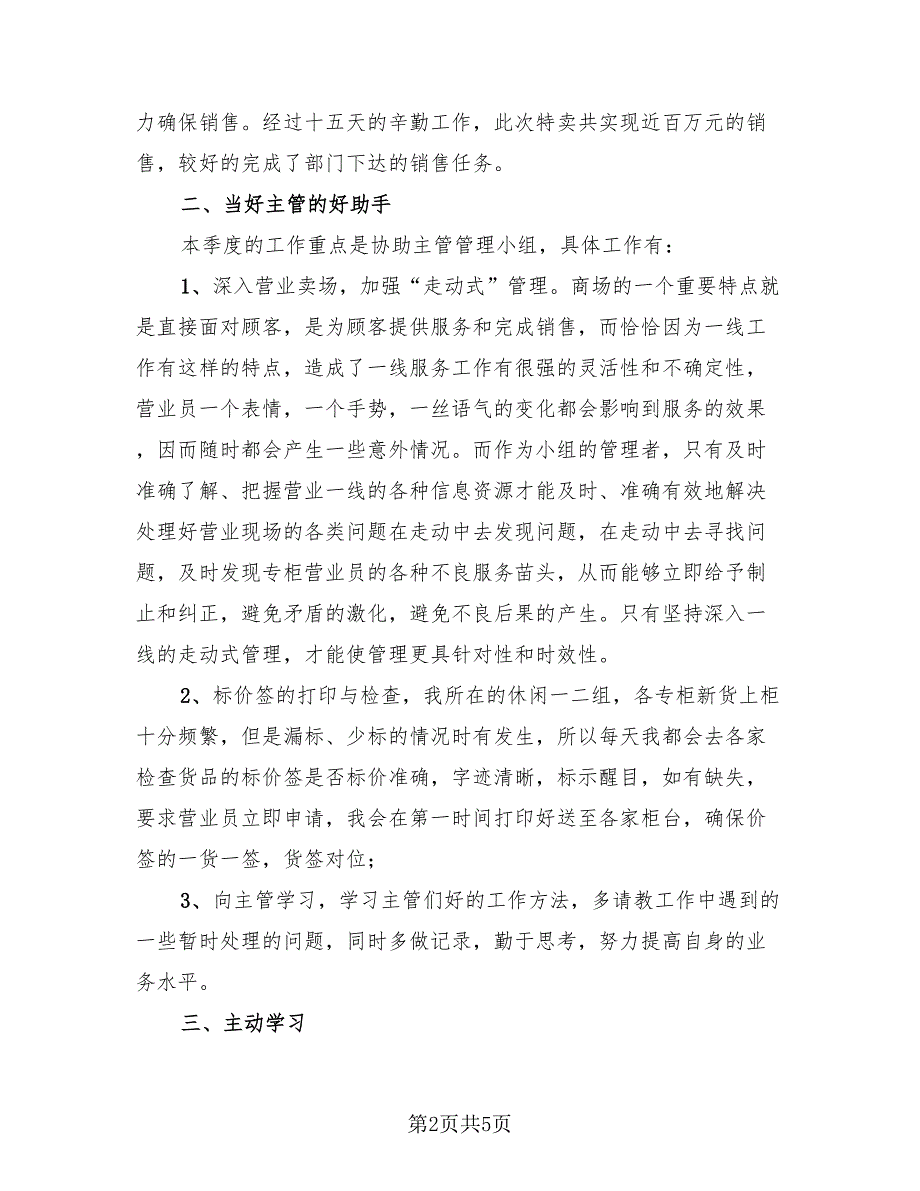 力确保销售。经过十五天的辛勤工作，此次特卖共实现近百万元的销
售，较好的完成了部门下达的销售任务。
二、当好主管的好助手
本季度的工作重点是协助主管管理小组，具体工作有：
1、深入营业卖场，加强“走动式”管理。商场的一个重要特点就
是直接面对顾客，是为顾客提供服务和完成销售，而恰恰因为一线工
作有这样的特点，造成了一线服务工作有很强的灵活性和不确定性，
营业员一个表情，一个手势，一丝语气的变化都会影响到服务的效果
，因而随时都会产生一些意外情况。而作为小组的管理者，只有及时
准确了解、把握营业一线的各种信息资源才能及时、准确有效地解决
处理好营业现场的各类问题在走动中去发现问题，在走动中去寻找问
题，及时发现专柜营业员的各种不良服务苗头，从而能够立即给予制
止和纠正，避免矛盾的激化，避免不良后果的产生。只有坚持深入一
线的走动式管理，才能使管理更具针对性和时效性。
2、标价签的打印与检查，我所在的休闲一二组，各专柜新货上柜
十分频繁，但是漏标、少标的情况时有发生，所以每天我都会去各家
检查货品的标价签是否标价准确，字迹清晰，标示醒目，如有缺失，
要求营业员立即申请，我会在第一时间打印好送至各家柜台，确保价
签的一货一签，货签对位；
3、向主管学习，学习主管们好的工作方法，多请教工作中遇到的
一些暂时处理的问题，同时多做记录，勤于思考，努力提高自身的业
务水平。
三、主动学习
第2页共5页